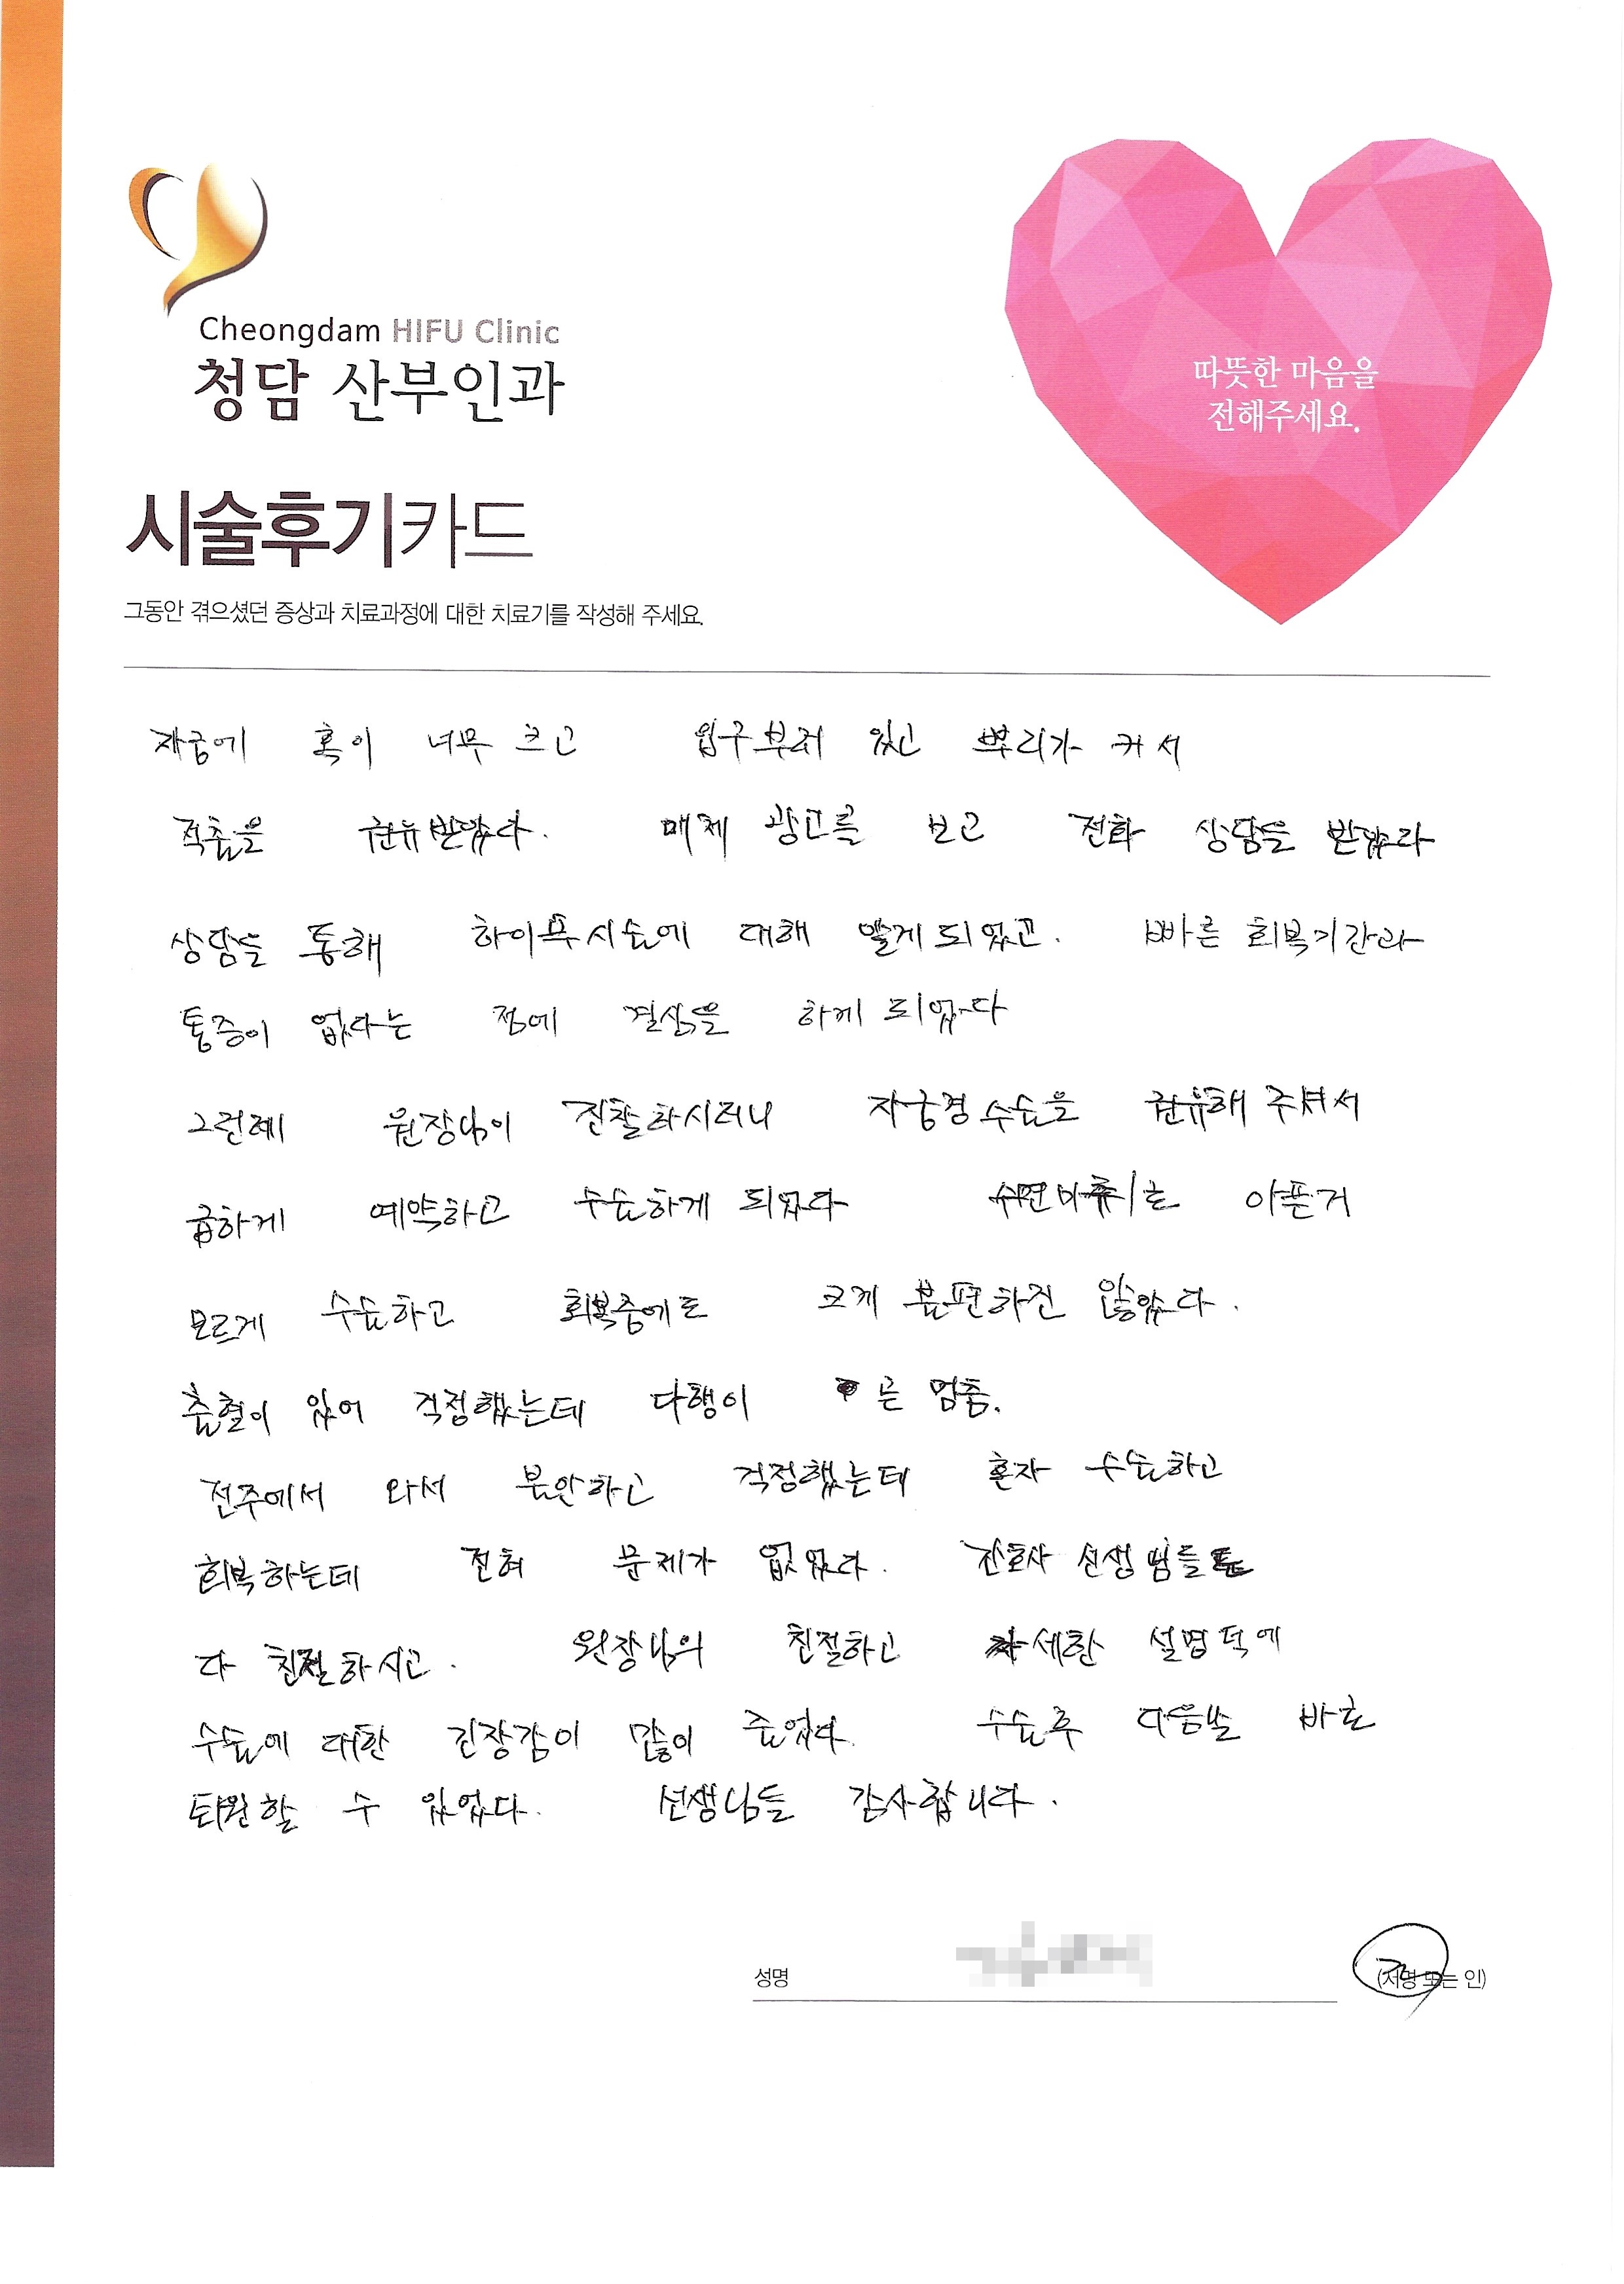 Cheongdam HIFU Clinic
청담 산부인과
따뜻한 마음을
전해주세요.
시술후기카드
그동안 겪으셨던 증상과 치료과정에 대한 치료기를 작성해 주세요.
자궁에 혹이 너무 크고 입구부터 있고 뿌리가 커서
적출을 권유받았다. 매체 광고를 보고 전화 상담을 받았다
상담을 통해 하이푸시술에 대해 알게되었고. 빠른 회복기간과
통증이 없다는 점에 결심을 하게 되었다
그런데 원장님이 진찰하시더니 자궁경수술을 권유해 주셔서
급하게 예약하고 수술하게 되었다 수면마취로 아픈거
모르게 수술하고 회복중에도 크게 불편하진 않았다.
출혈이 있어 걱정했는데 다행이 곧 멈춤.
전주에서 와서 불안하고 걱정했는데 혼자 수술하고
회복하는데 전혀 문제가 없었다. 간호사 선생님들도
다 친절하시고. 원장님의 친절하고 자세한 설명덕에
수술에 대한 긴장감이 많이 줄었다. 수술후 다음날 바로
퇴원할 수 있었다. 선생님들 감사합니다.
성명 (서명 또는 인)